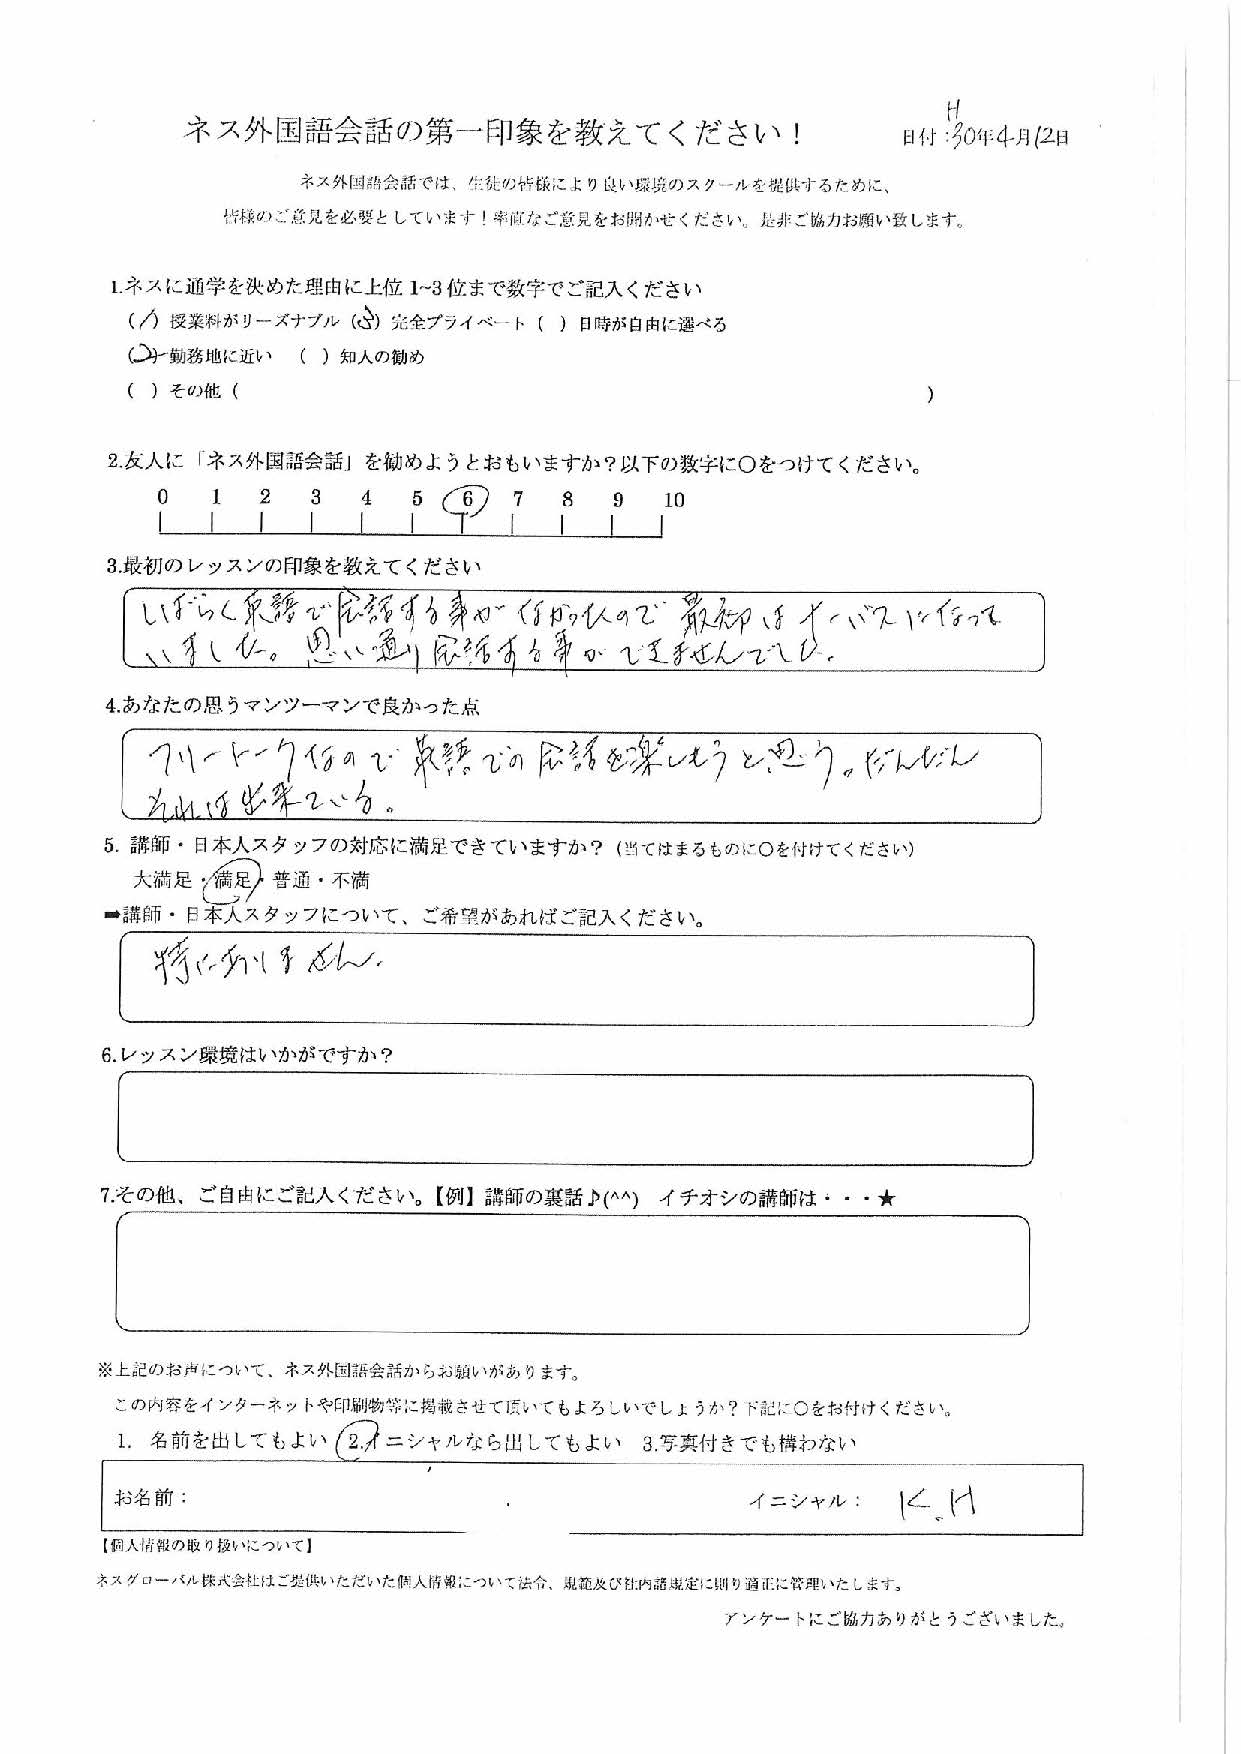 ネス外国語会話の第一印象を教えてください！
日付：H30年4月12日
ネス外国語会話では、生徒の皆様により良い環境のスクールを提供するために、
皆様のご意見を必要としています！率直なご意見をお聞かせください。是非ご協力お願い致します。
1.ネスに通学を決めた理由に上位 1~3 位まで数字でご記入ください
（1）授業料がリーズナブル（3）完全プライベート（ ）日時が自由に選べる
（2）勤務地に近い （ ）知人の勧め
（ ）その他（ ）
2.友人に「ネス外国語会話」を勧めようとおもいますか？以下の数字に〇をつけてください。
0 1 2 3 4 5 6 7 8 9 10
3.最初のレッスンの印象を教えてください
しばらく英語で会話する事がなかったので最初はナーバスになって
いました。思い通り会話する事ができませんでした。
4.あなたの思うマンツーマンで良かった点
フリートークなので英語での会話を楽しもうと思う。だんだん
それは出来ている。
5. 講師・日本人スタッフの対応に満足できていますか？（当てはまるものに〇を付けてください）
大満足・満足・普通・不満
➡講師・日本人スタッフについて、ご希望があればご記入ください。
特にありません。
6.レッスン環境はいかがですか？
7.その他、ご自由にご記入ください。【例】講師の裏話♪(^^) イチオシの講師は・・・★
※上記のお声について、ネス外国語会話からお願いがあります。
この内容をインターネットや印刷物等に掲載させて頂いてもよろしいでしょうか？下記に〇をお付けください。
1. 名前を出してもよい 2.イニシャルなら出してもよい 3.写真付きでも構わない
お名前： イニシャル： K.H
【個人情報の取り扱いについて】
ネスグローバル株式会社はご提供いただいた個人情報について法令、規範及び社内諸規定に則り適正に管理いたします。
アンケートにご協力ありがとうございました。